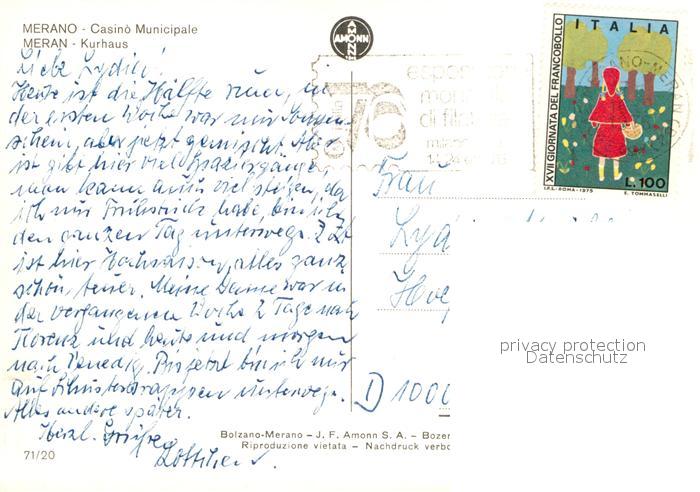 MERANO - Casinò Municipale
MERAN - Kurhaus
AMONN
AMONN
Liebe Lydia!
Heute ist die Hälfte rum, in
der ersten Woche war nur Sonnen-
schein, aber jetzt gemischt. Aber
ist gibt hier viel Spaziergänge,
man kann auch viel sitzen, da
ich nur Frühstück habe, bin ich
den ganzen Tag unterwegs. Z Zt
ist hier Hochsaison, alles ganz
schön teuer. Meine Dame war in
der vergangenen Woche 2 Tage nach
Florenz und heute und morgen
nach Venedig. Bis jetzt bin ich nur
auf Schusters Rappen unterwegs.
Alles andere später.
Herzl. Grüße
71/20
Bolzano-Merano - J. F. Amonn S. A. - Bozen
Riproduzione vietata - Nachdruck verbo
esposizione
mondiale
di filatelia
milano
italia 76
ITALIA
XVII GIORNATA DEL FRANCOBOLLO
L. 100
I.P.S.-ROMA-1975
E. TOMMASELLI
Frau
Lyd
D 1000
privacy protection
Datenschutz